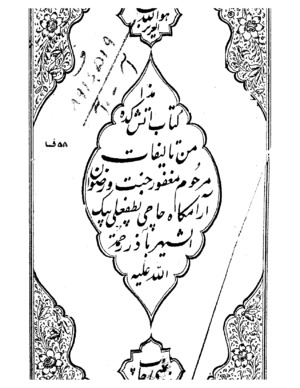 هو الله
العزیز
هذا
کتاب آتش کده
من تالیفات
مرحوم مغفور جنت و رضوان
آرامگاه حاجی لطفعلی بیک
الشهیر باذر رحمة
الله علیه
۵۸ ف